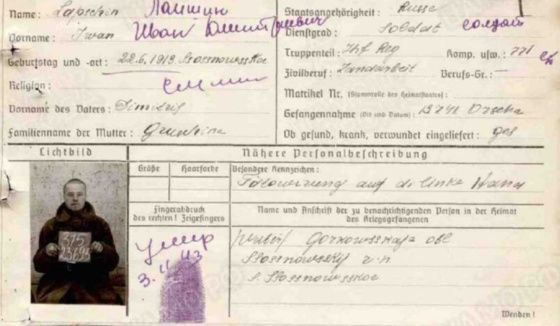 Name: Lapschin Лапшин
Vorname: Iwan Иван Дмитриевич
Geburtstag und -ort: 22.6.1919 Sosnowskoe
Religion:
Vorname des Vaters: Dimitrij
Familienname der Mutter:
Staatsangehörigkeit: Russe
Dienstgrad: Soldat солдат
Truppenteil: Inf. Reg Komp. usw.:
Zivilberuf: Landarbeit Berufs-Gr.:
Matrikel Nr. (Stammrolle des Heimatstaates):
Gefangennahme (Ort und Datum): Orscha
Ob gesund, krank, verwundet eingeliefert: ges
Lichtbild
Nähere Personalbeschreibung
Größe Haarfarbe Besondere Kennzeichen:
Tätowierung auf d. linke Hand
Fingerabdruck
des rechten! Zeigefingers
Name und Anschrift der zu benachrichtigenden Person in der Heimat
des Kriegsgefangenen
умер
Gorkowskaja obl
Sosnowskij r-n
s. Sosnowskoe
Wenden!